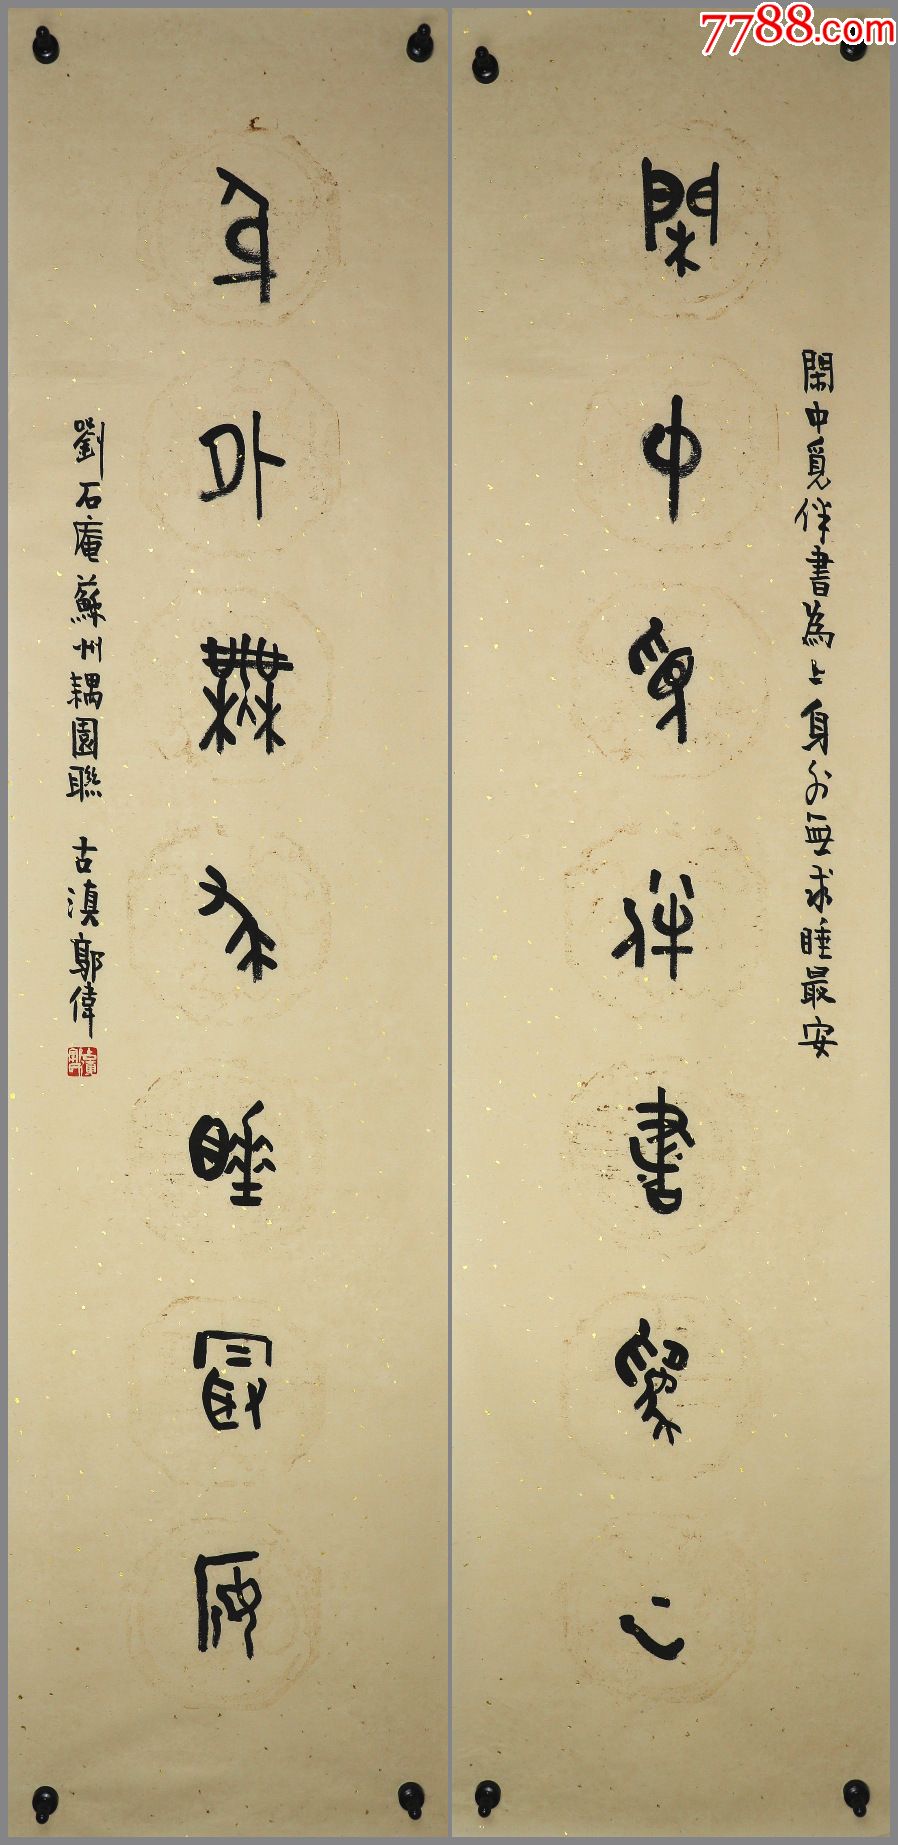 7788.com
閑中覓伴書為上身外無求睡最安
閑中覓伴書為上
身外無求睡最安
劉石庵蘇州耦園聯 古滇鄔偉